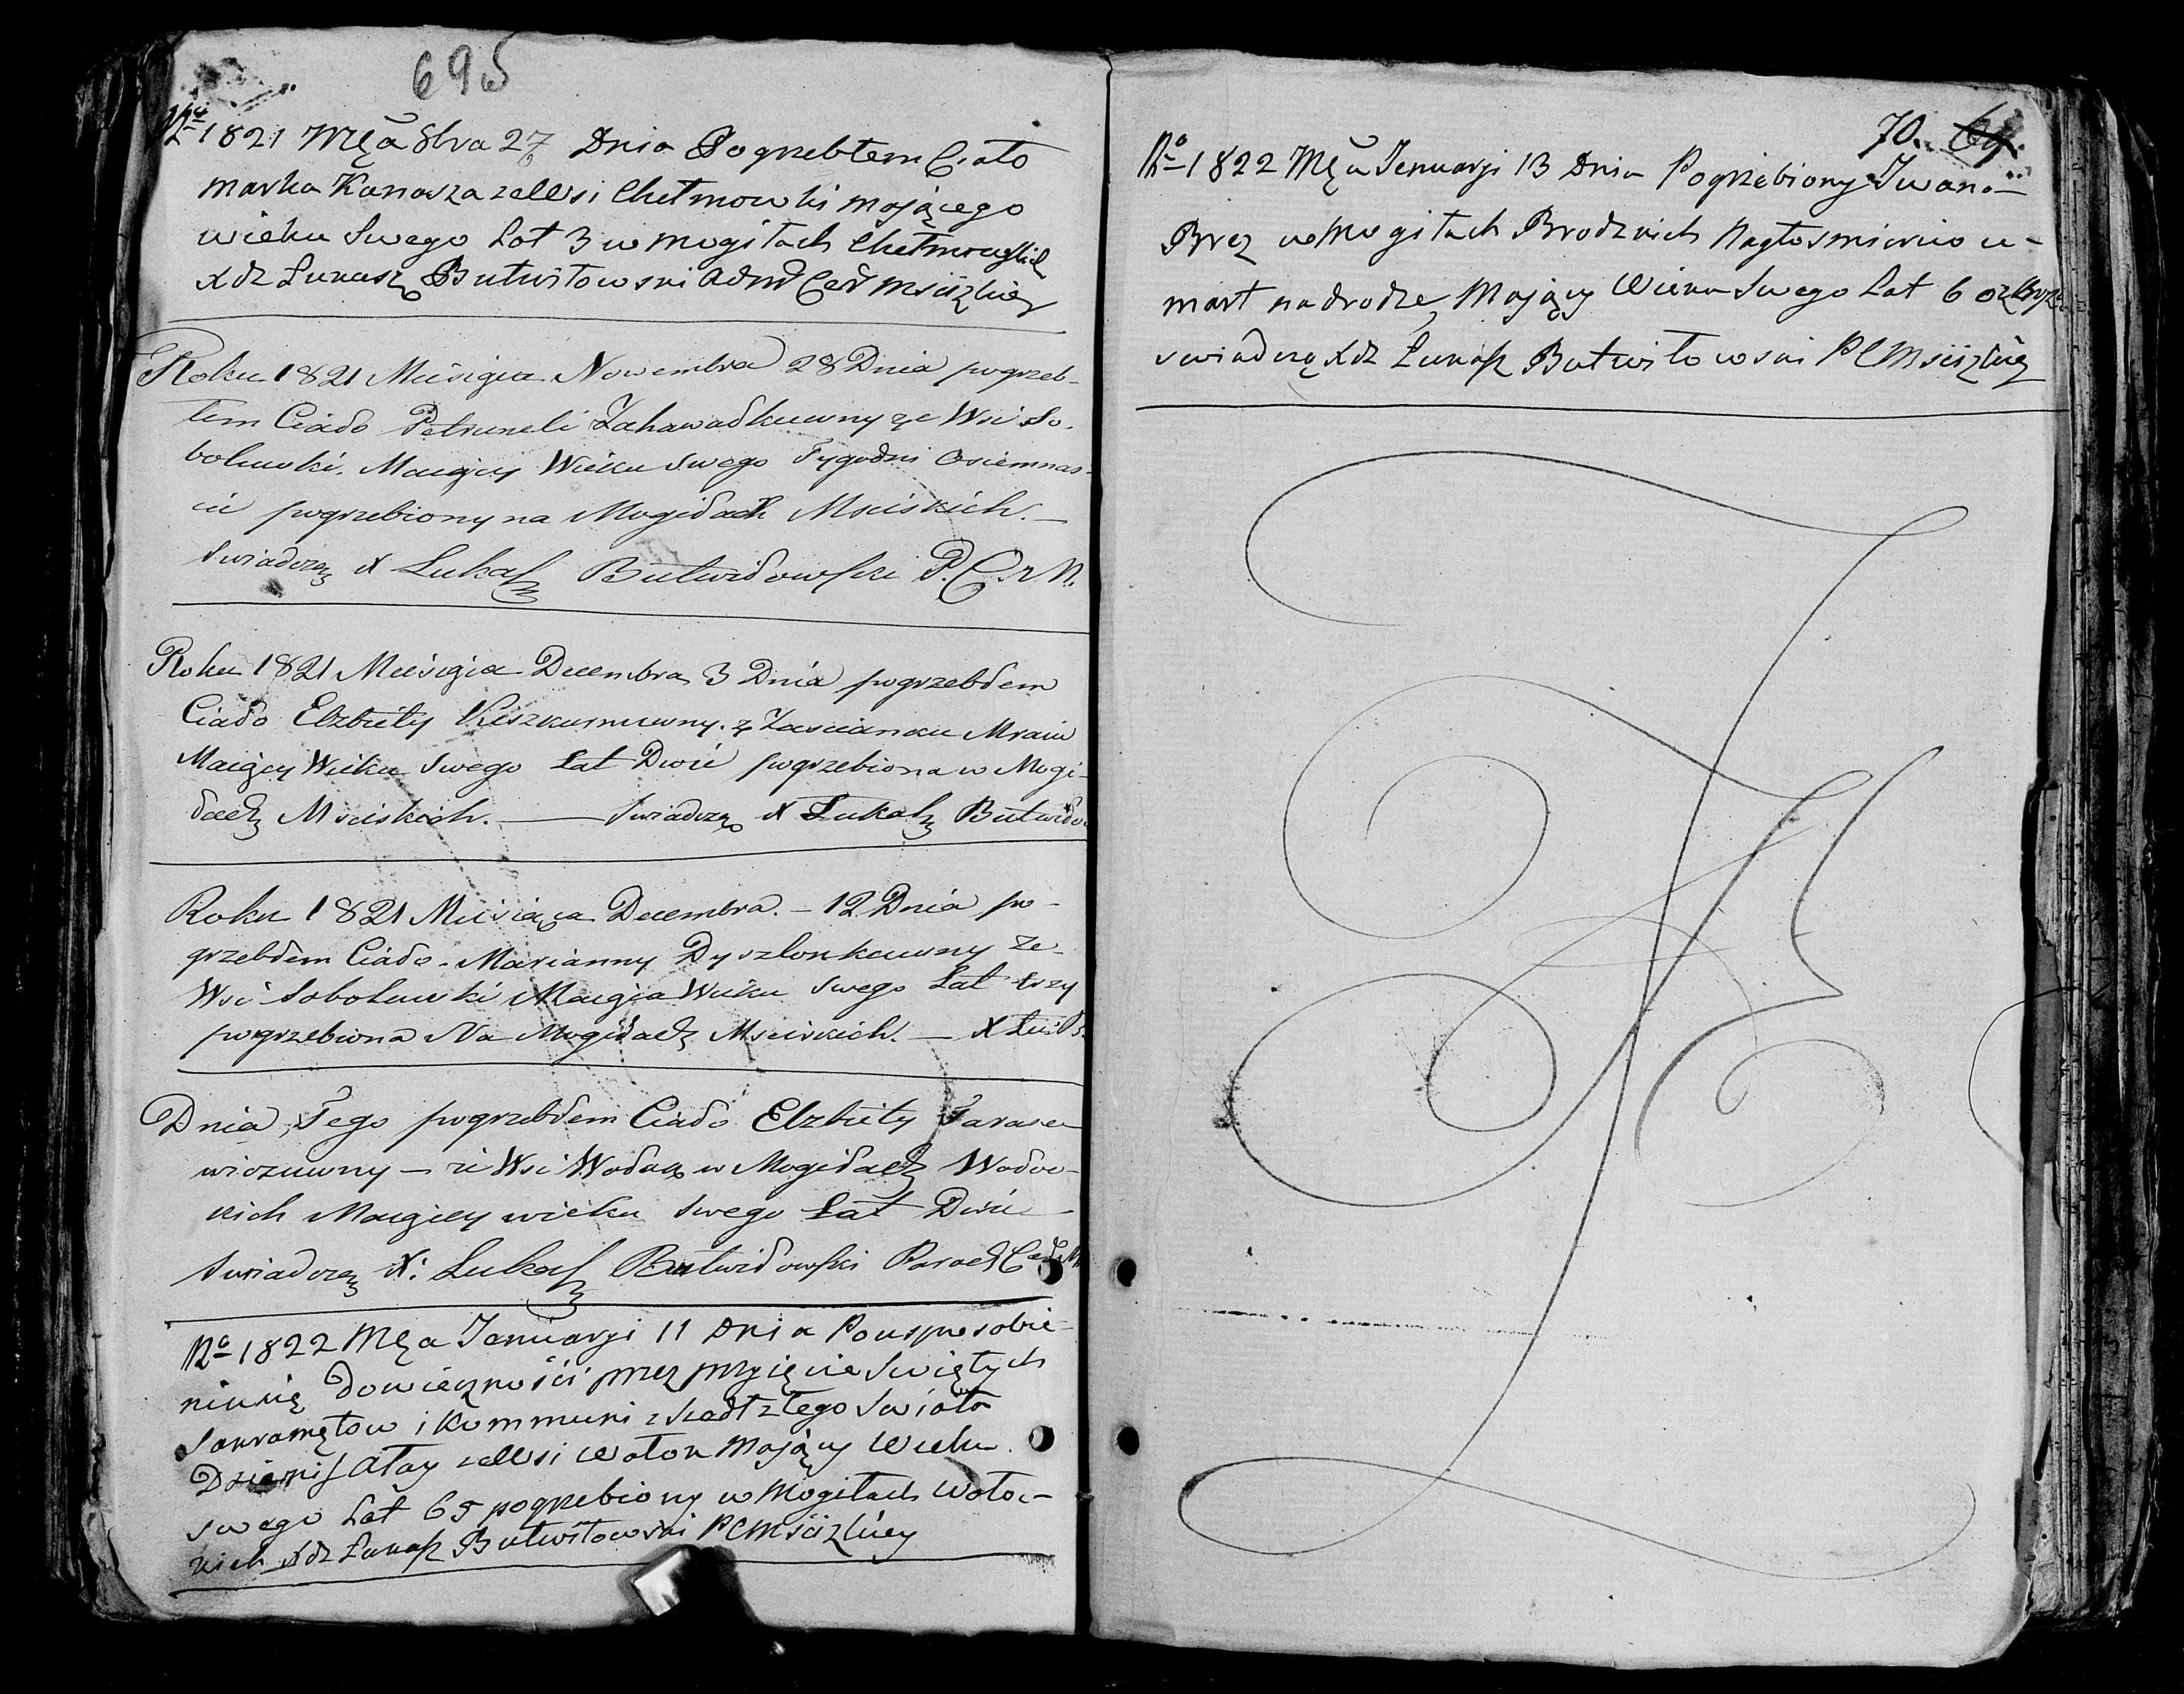 69ৡ
Rº 1821 Mca 8bra 27 Dnia Pogrzebłem Ciało
marka Kanasza zeWsi Chełmowki mającego
wieku Swego Lat 3 w mogiłach Chełmowskich
xdz Łukasz Butwiłowski Adm Cer Msciżkiey
Roku 1821 Miesiąca Nowembra 28 Dnia pogrzeb-
łem Ciało Petruneli Zahawadkuwny ze Wsi So-
boluwki. Maiącey Wieku Swego Tygodni Osiemnas-
cie pogrzebiony na Mogiłach Msciskich.
Swiadczę X Łukasz Butwiłowski P. C. M.
Roku 1821 Miesiąca Decembra 3 Dnia pogrzebłem
Ciało Elzbiety Kiszkurnuwny. z Zascianku Mraiu
Maiącey Wieku Swego Lat Dwie pogrzebiona w Mogi-
łach Msciskich. — Swiadczę X Łukasz Butwiło
Roku 1821 Miesiąca Decembra. – 12 Dnia po-
grzebłem Ciało – Marianny Dyszlonkuwny ze
Wsi Soboluwki Maiąca Wieku Swego Lat trzy
pogrzebiona Na Mogiłach Msciskich. — X Łu: B.
Dnia Tego pogrzebłem Ciało Elzbiety Tarase-
wiczuwny – ze Wsi Wołok w Mogiłach Wołoc-
kich Maiącey wieku Swego Lat Dwie
Swiadczę X: Łukasz Butwiłowski Paroch Cer M
Rº 1822 Mca Januarji 11 Dnia Pousposobie-
niusię dowieczności przez przyięcie Swiętych
Sakramętow i Kommuni zszedł ztego Swiata
Dzienis Ałay zeWsi Wołok Mający Wieku
swego Lat 65 pogrzebiony w Mogiłach Wołoc-
kich xdz Łukasz Butwiłowski PCMsciżkiey
70. 69.
Rº 1822 Mca Jenuarji 13 Dnia Pogrzebiony Iwan
Brez w Mogiłach Brodzkich Nagłosmiercio u-
marł nadrodze, Mający Wieku Swego Lat 60
swiadczę xdz Łukasz Butwiłowski PCMsciżkiey